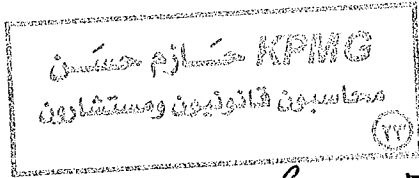 KPMG حازم حسن
محاسبون قانونيون ومستشارون
(٢٣)